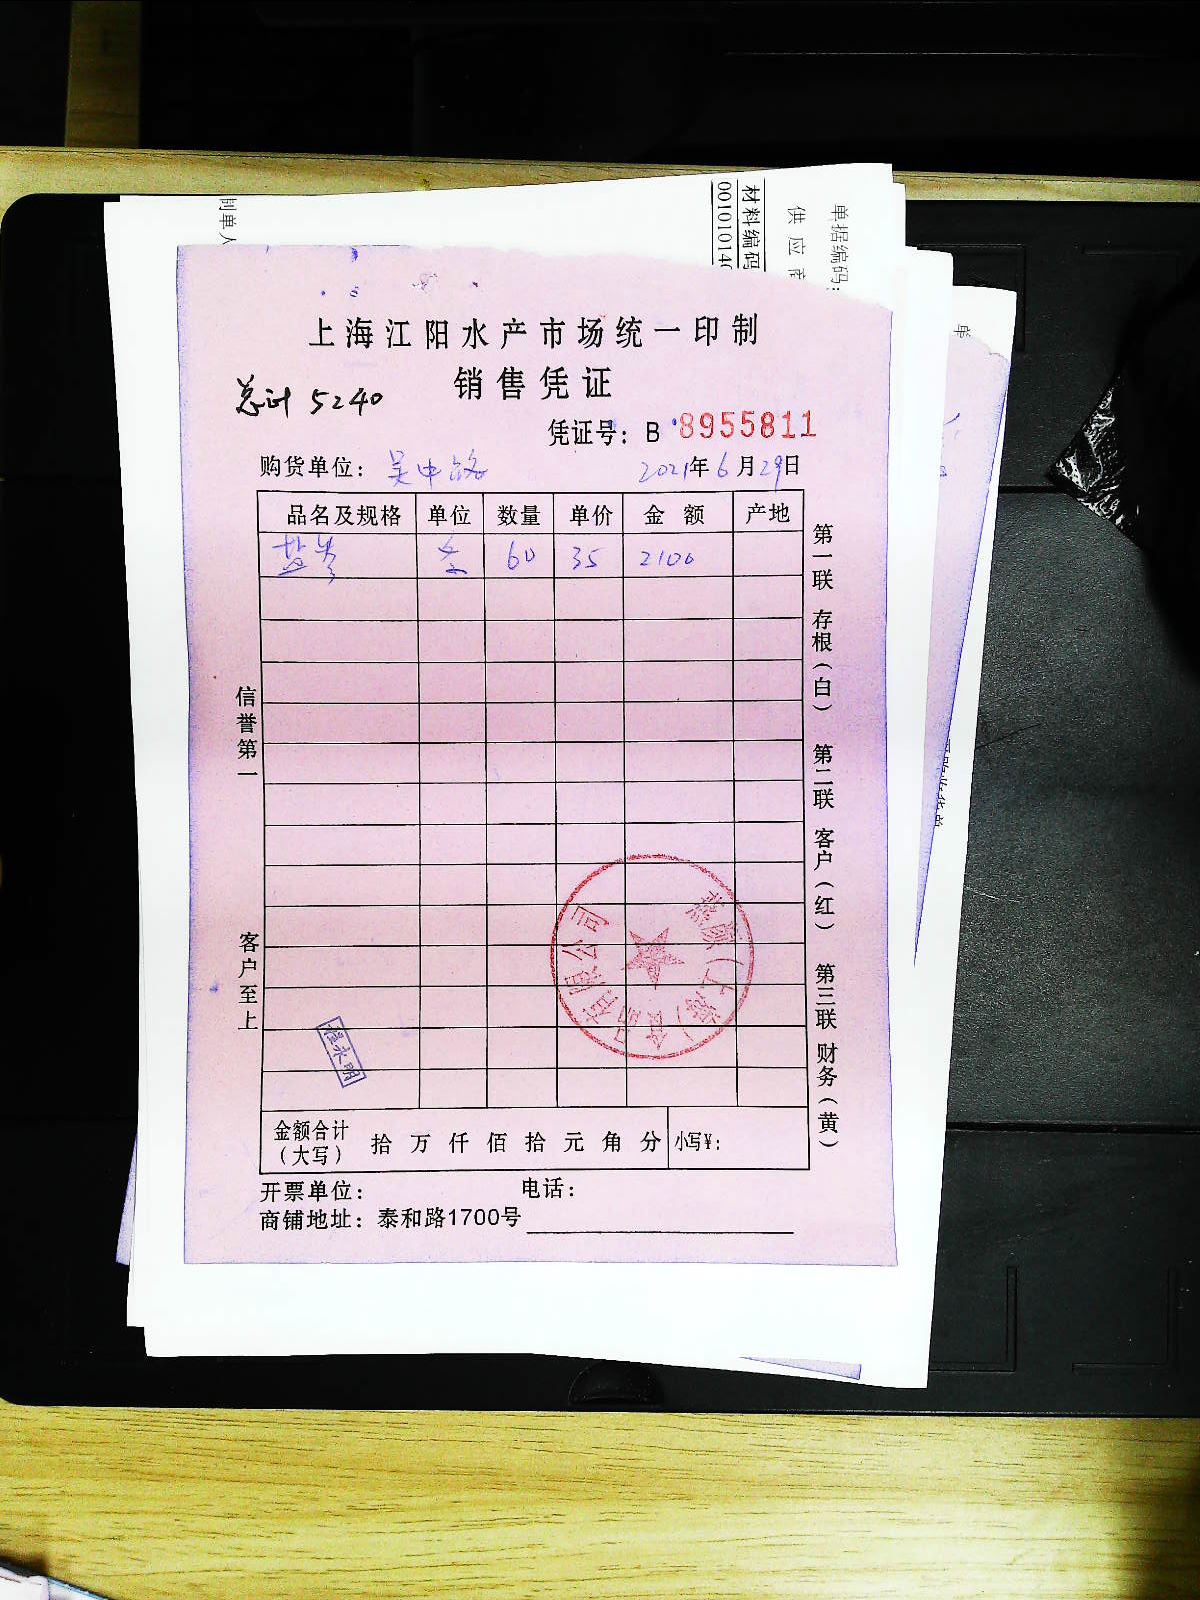 单据编码:
供应商
材料编码
00101014
制单人
单
上海江阳水产市场统一印制
销售凭证
总计 5240
凭证号: B 8955811
购货单位: 吴中路 2021年6月29日
品名及规格 单位 数量 单价 金额 产地
60 35 2100
信誉第一
客户至上
第一联 存根(白) 第二联 客户(红) 第三联 财务(黄)
燕颜(上海)食品有限公司
程永明
金额合计(大写) 拾 万 仟 佰 拾 元 角 分 小写¥:
开票单位: 电话:
商铺地址: 泰和路1700号